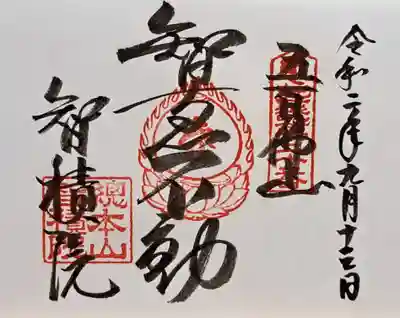 令和二年九月十三日
五百佛山
智不動
智積院
總本山
智積院